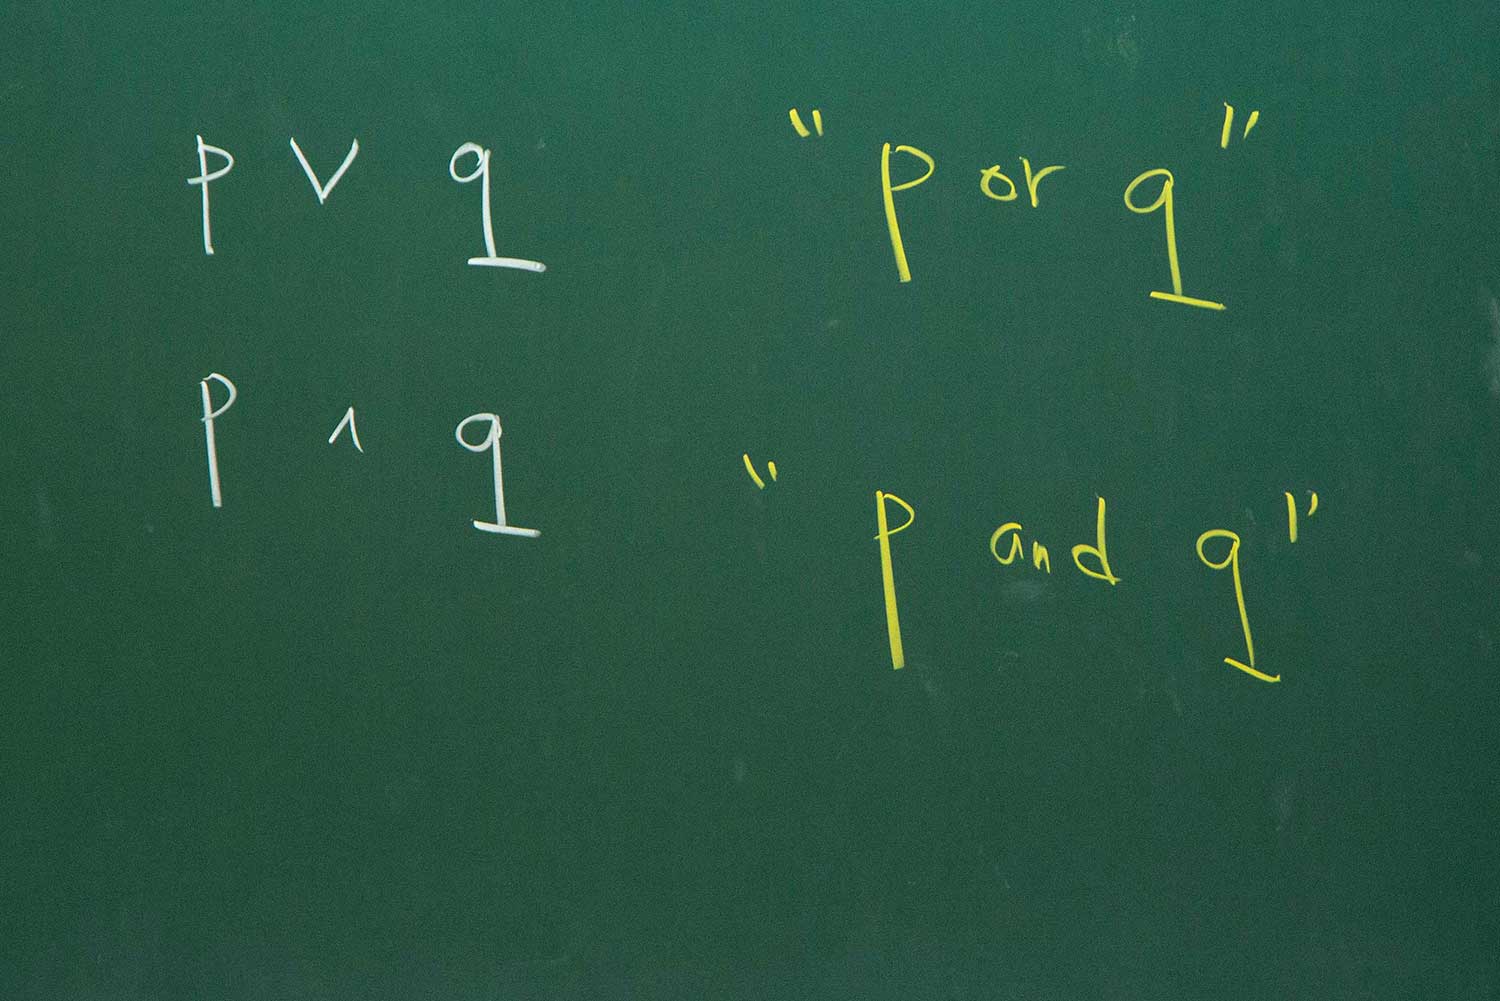 p ∨ q "p or q"
p ∧ q "p and q"